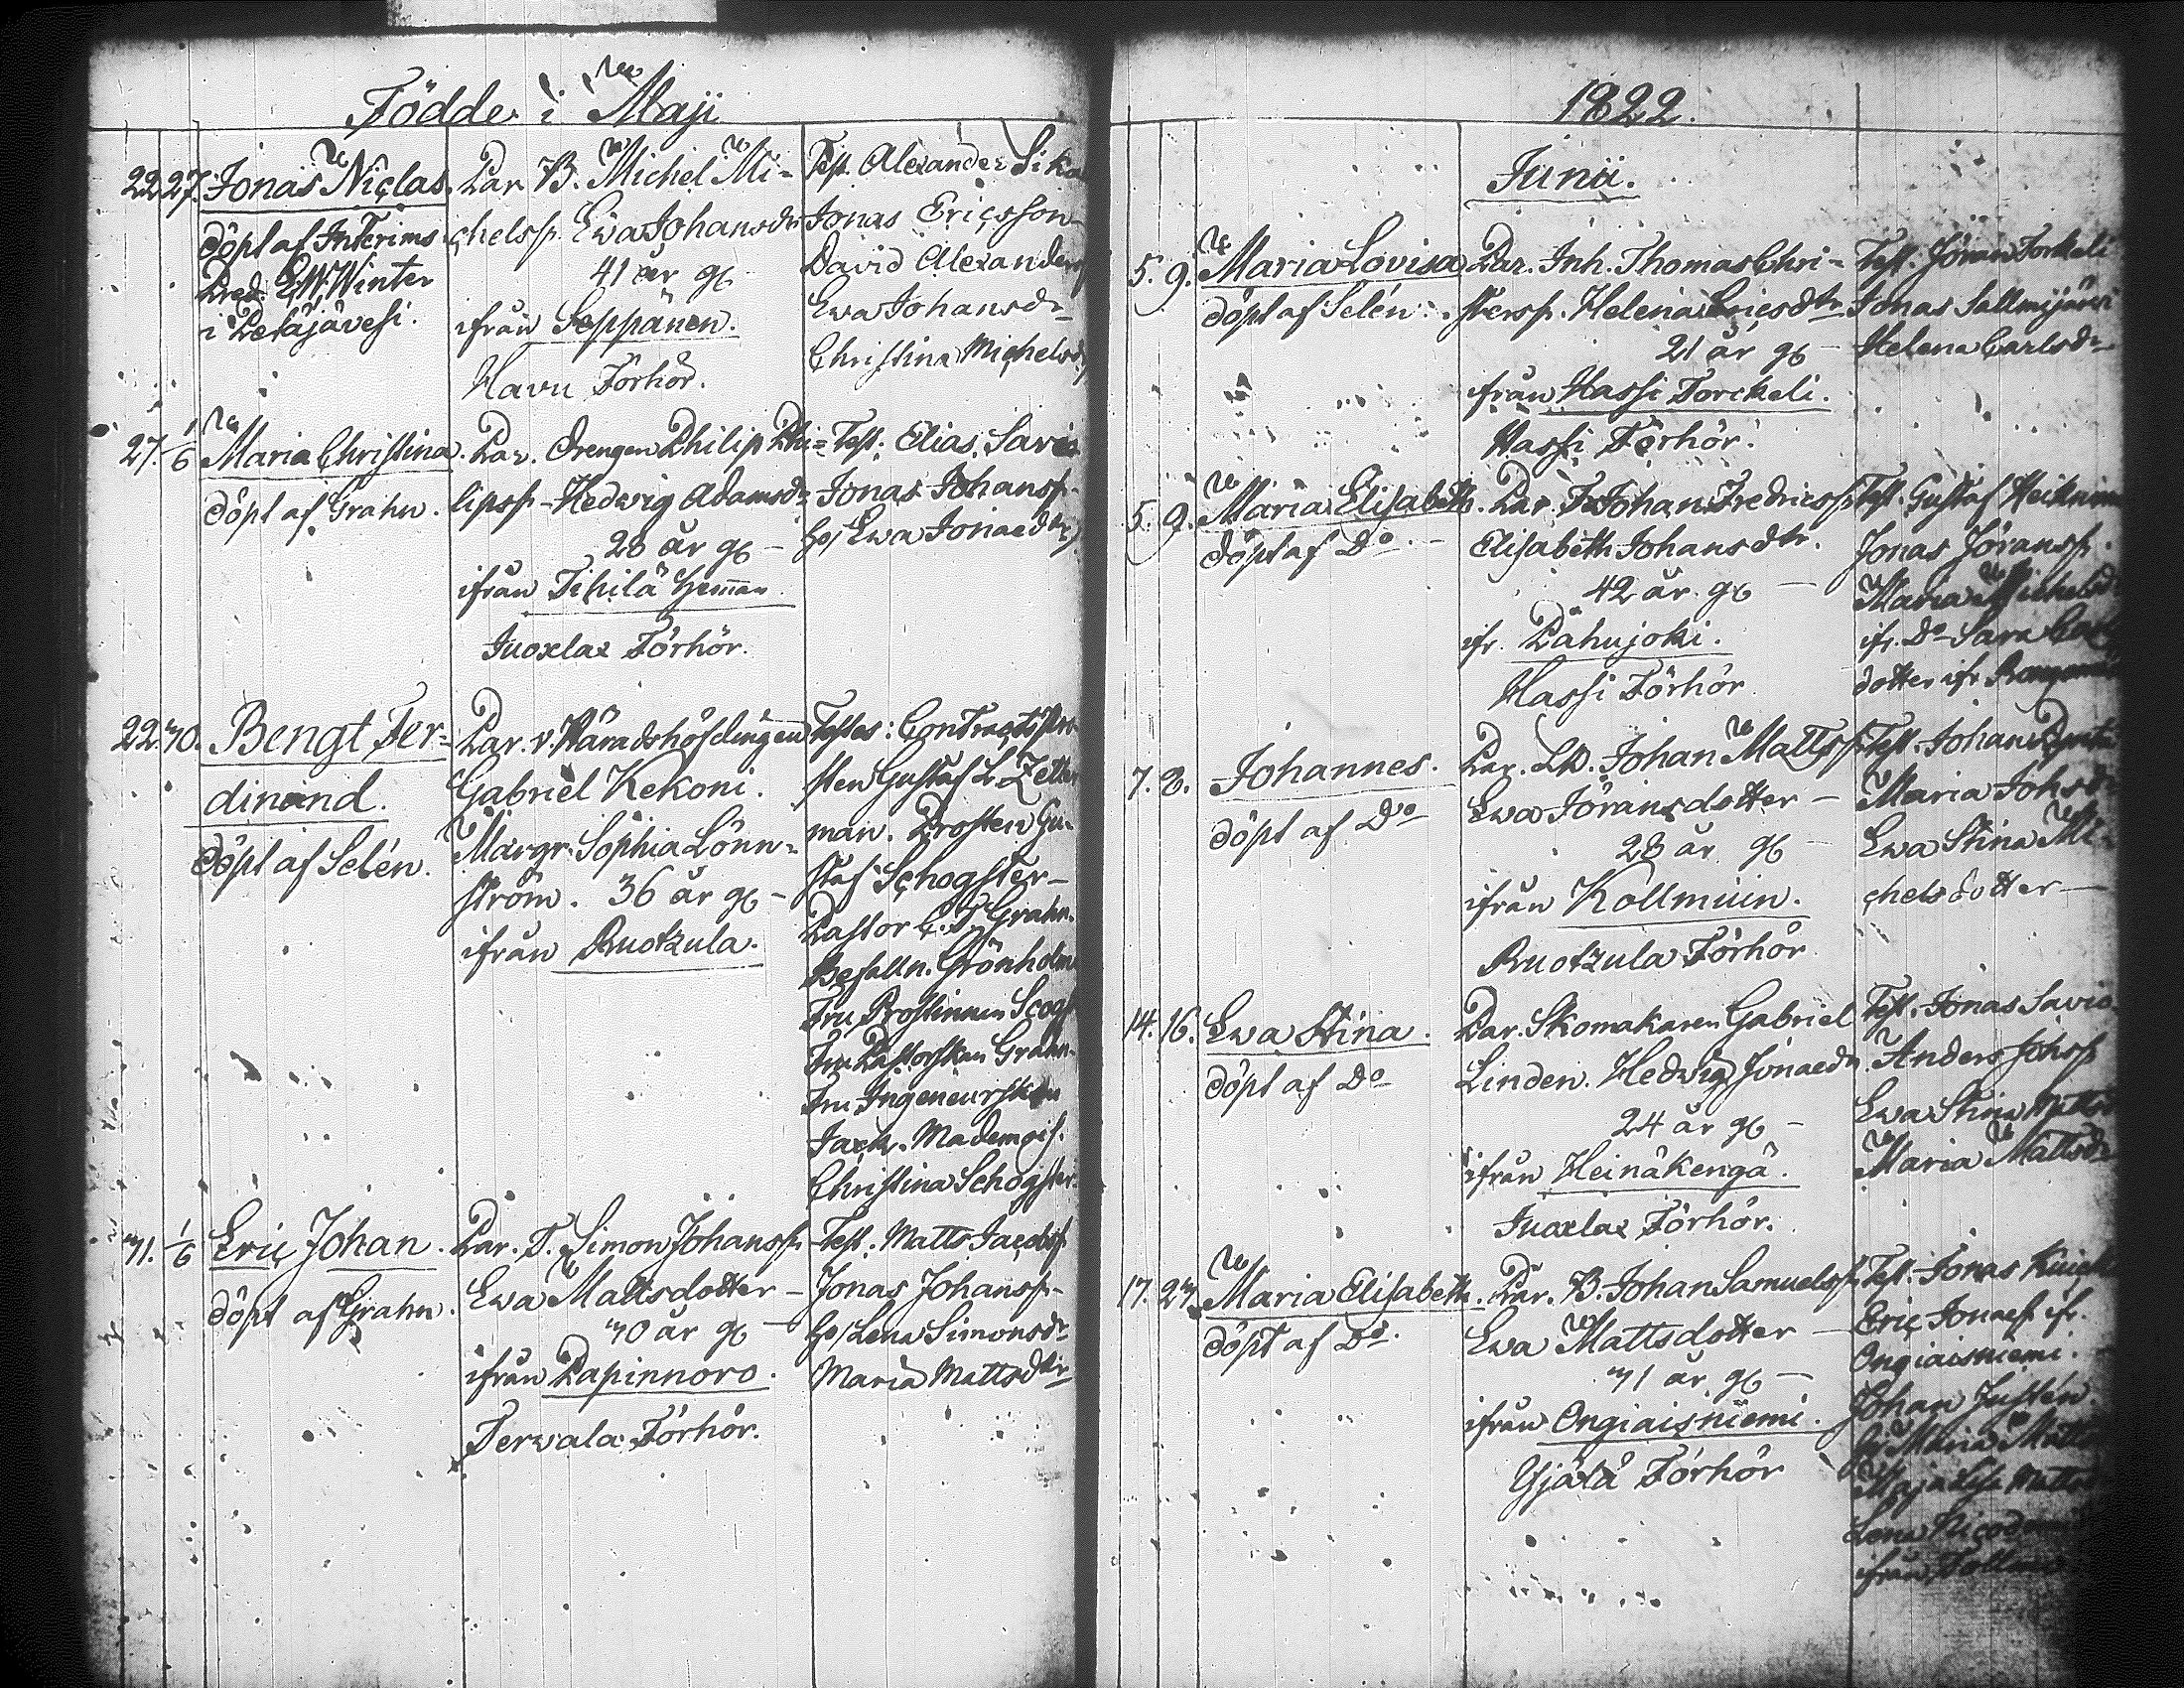 Födde i Maji
22. 27. Jonas Niclas.
döpt af Interims
Pred. E.W. Winter
i Petäjävesi.
Par. B. Michel Mi-
chelss. Ewa Johansdr
41 år gl
ifrån Seppänen.
Havu Förhör.
Test. Alexander Sika
Jonas Ericsson
David Alexanders
Ewa Johansdr
Christina Michelsdr
27. 1/6 Maria Christina.
döpt af Grahn.
Par. Drengen Philip Phi-
lipss. Hedwig Adamsdr
28 år gl
ifrån Tihilä Hem̅an
Juoxlax Förhör.
Test. Elias Savio
Jonas Johanss.
Ho, Ewa Jonaedtr
22. 30. Bengt Fer-
dinand.
döpt af Selén.
Par. v. Häradshöfdingen
Gabriel Kekoni.
Margr. Sophia Lönn-
ström. 36 år gl
ifrån Ruotzula.
Testes: Contracts Pro-
sten Gustaf L. Zetter
man. Prosten Gu-
staf Schogster
Pastor C.F. Grahn.
Befalln. Grönholm
Fru Prostinnan Scogst
Fru Pastorskan Grahn.
Fru Ingeneurskan
Jack. Mademois.
Christina Schogster
31. 1/6 Eric Johan.
döpt af Grahn.
Par. T. Simon Johanss.
Ewa Mattsdotter
30 år gl
ifrån Papinnoro.
Terwala Förhör.
Test. Matts Jacobss.
Jonas Johanss.
Ho, Lena Simonsdr
Maria Mattsdtr
1822.
Junii.
5. 9. Maria Lovisa
döpt af Selén.
Par. Inh. Thomas Chri-
sterss. Helena Ericsdtr
21 år gl
ifrån Hassi Torckeli.
Hassi Förhör.
Test. Jöran Torkeli
Jonas Sallmijärvi
Helena Carlsdr
5. 9. Maria Elisabeth.
döpt af Do
Par. T. Johan Fredricss.
Elisabeth Johansdtr.
42 år gl
ifr. Pähujoki.
Hassi Förhör
Test. Gustaf Heikkinen
Jonas Jöranss.
Maria Michelsdr
ifr. Do Sara
dotter ifr
7. 8. Johannes.
döpt af Do
Par. LD. Johan Mattss.
Ewa Jöransdotter
28 år gl
ifrån Kollmuin.
Ruotzula Förhör
Test. Johan
Maria Johsdr
Ewa Stina Mi-
chelsdotter
14. 16. Ewa Stina.
döpt af Do
Par. Skomakaren Gabriel
Linden. Hedwig Jonaedr.
24 år gl
ifrån Heinäkengä.
Juoxlax Förhör.
Test. Jonas Savio
Anders Johss.
Ewa Stina Mattsdr
Maria Mattsdr
17. 23. Maria Elisabeth.
döpt af Do.
Par. B. Johan Samuelss.
Ewa Mattsdotter
31 år gl
ifrån Ongiaisniemi.
Yjälä Förhör
Test. Jonas
Eric Jonaess. ifr.
Ongiaisniemi.
Johan Justén.
Ho, Maria Matts
Maja Lisa Matts
Lena Nicodem
ifrån